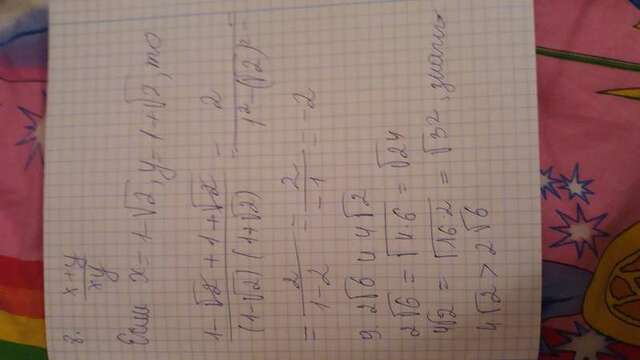 8. x+y/xy
Если x=1-√2, y=1+√2, то
1-√2+1+√2/(1-√2)(1+√2) = 2/1²-(√2)² =
= 2/1-2 = 2/-1 = -2
9. 2√6 и 4√2
2√6 = √4·6 = √24
4√2 = √16·2 = √32, значит
4√2 > 2√6